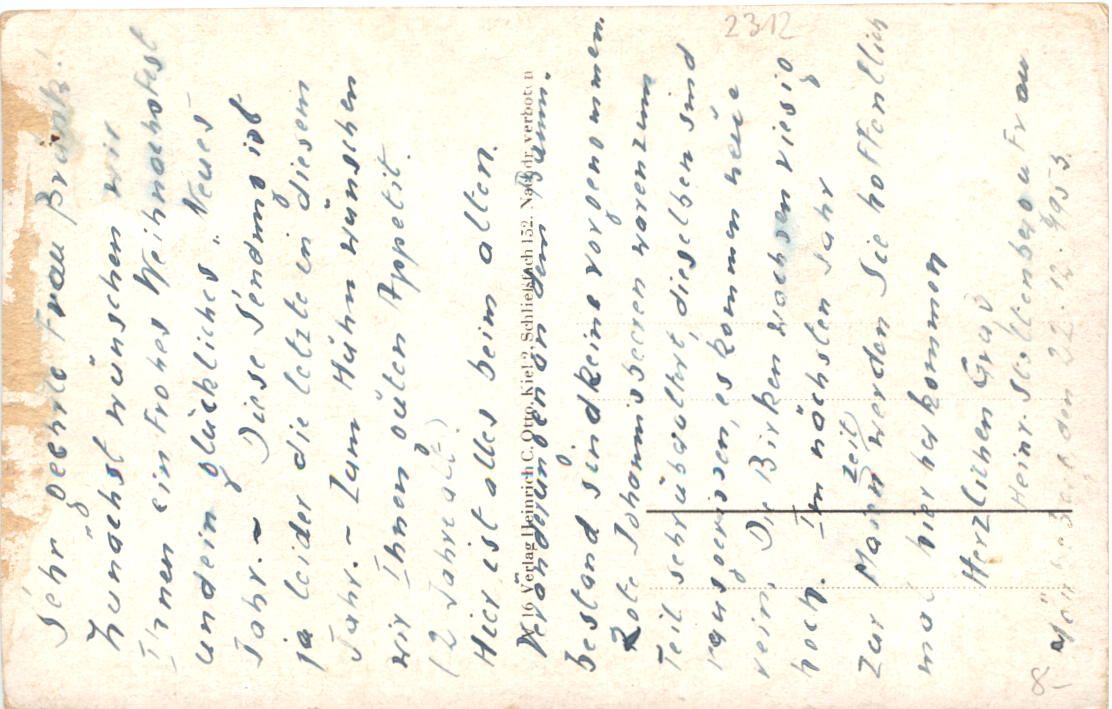 Sehr geehrte Frau
Zunächst wünschen wir
Ihnen ein Frohes Weihnachtsfest
und ein glückliches „Neues
Jahr. – Diese Sendung ist
ja leider die letzte in diesem
Jahr. – Zum Hühn wünschen
wir Ihnen guten Appetit.
(2 Jahre alt).
Hier ist alles beim alten.
Veränderungen an dem Baum.
bestand sind keine vorgenommen.
Rote Johannisbeeren waren zum
Teil sehr überaltert, dieselben sind
rausgerissen, es kommen neue
rein. Die Birken wachsen riesig
hoch. Im nächsten Jahr
zur Mainzeit werden Sie hoffentlich
mal hier her kommen
Herzlichen Gruß
Heinr. u Frau
den 22.12.1953.
W 16 Verlag Heinrich C. Otto, Kiel 2, Schließfach 152. Nachdr. verboten
2312
8